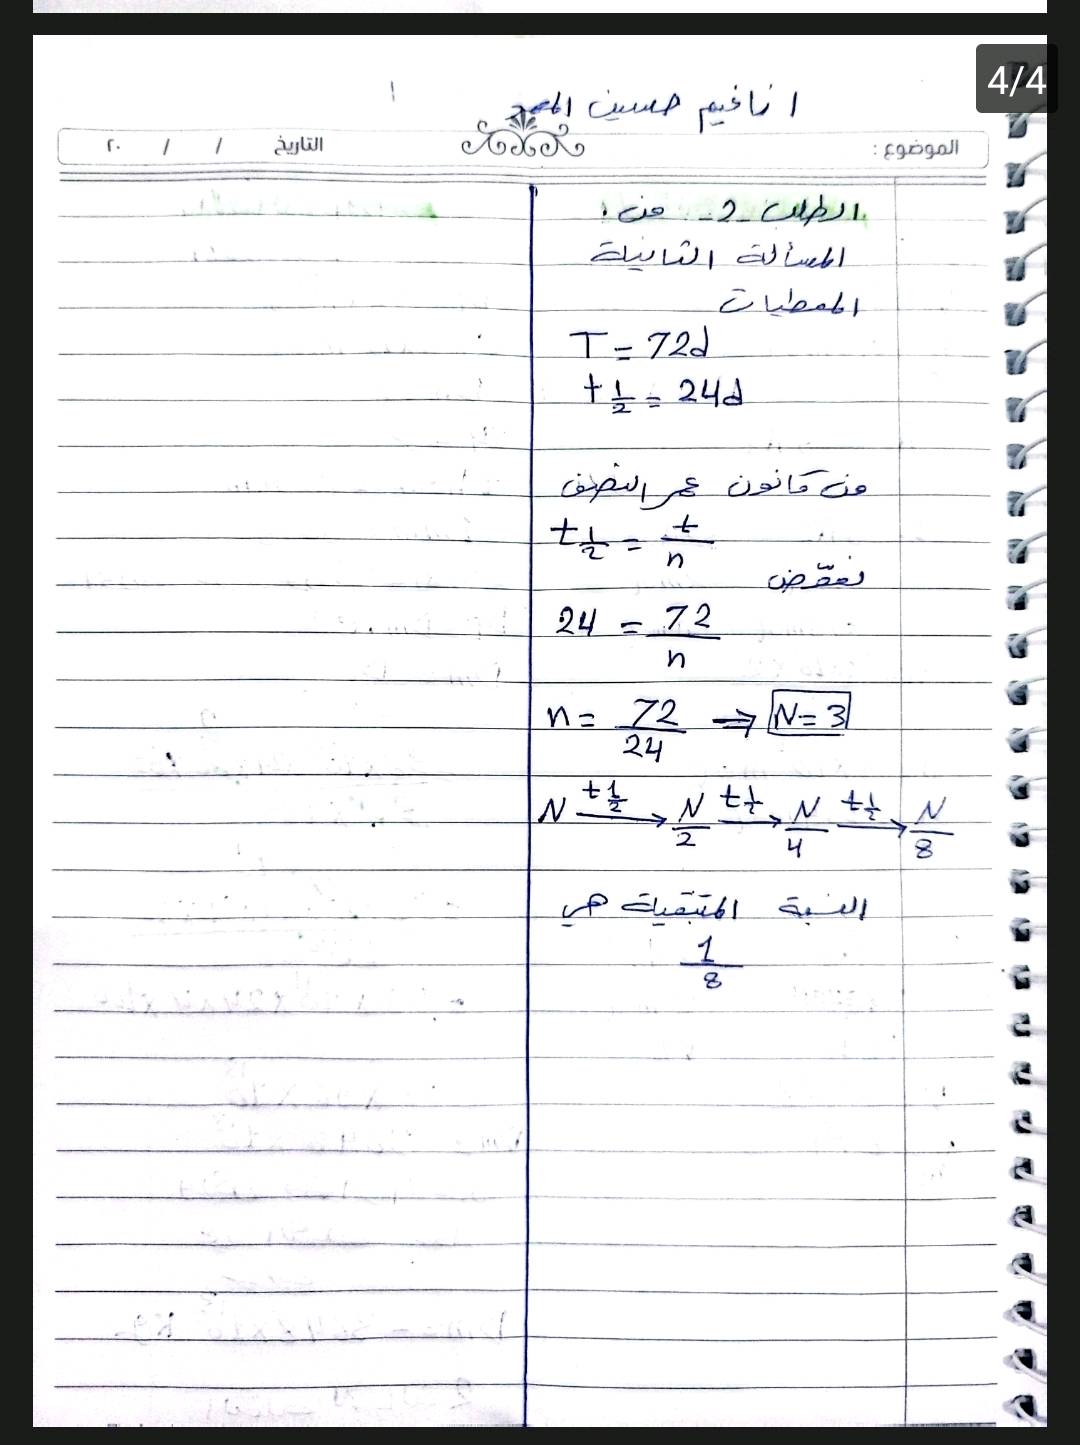 4/4
ا نافيم حسين
الموضوع :
التاريخ / / ٢٠
الطلب -2- من
المسألة الثانية
المعطيات
T = 72d
t 1/2 = 24d
من قانون عمر النصف
t 1/2 = t/n
نعوّض
24 = 72/n
n = 72/24 ⇒ N = 3
N →(t 1/2) N/2 →(t 1/2) N/4 →(t 1/2) N/8
النسبة المتبقية هي
1/8